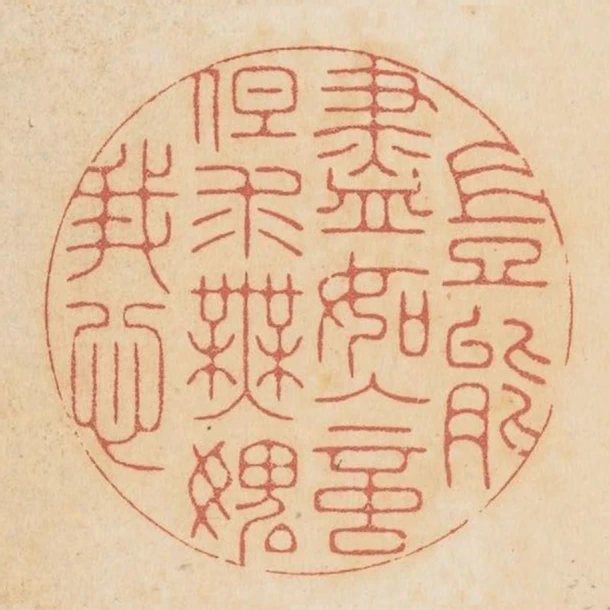 豈能
盡如人意
但求無媿
我心